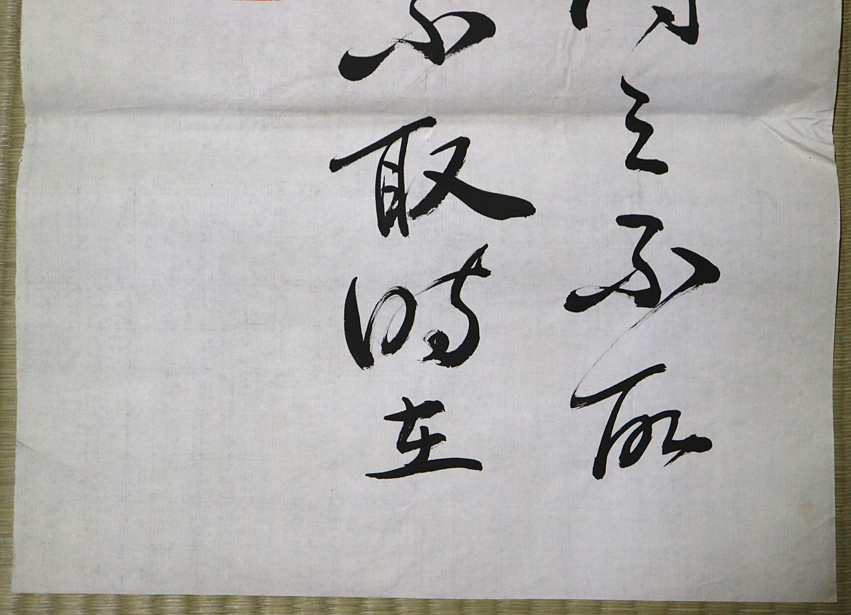 之不
不取時在